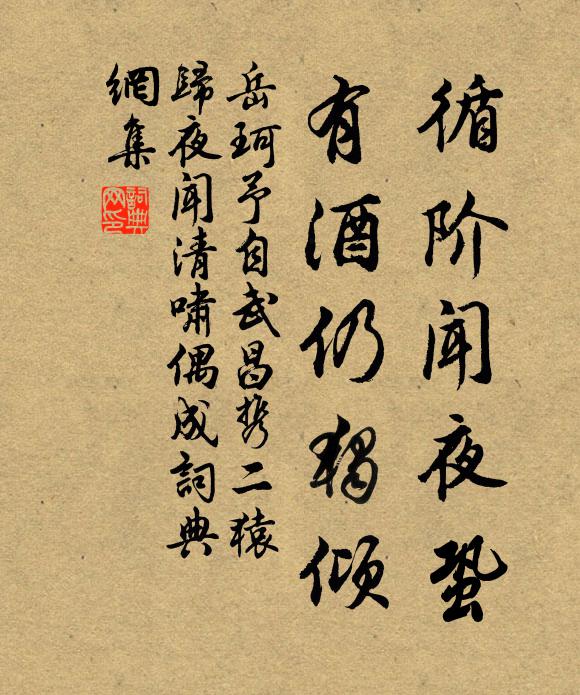 循阶闻夜蛩
有酒仍独倾
岳珂予自武昌携二猿
歸夜闻清啸偶成詞典
網集
詞典网印